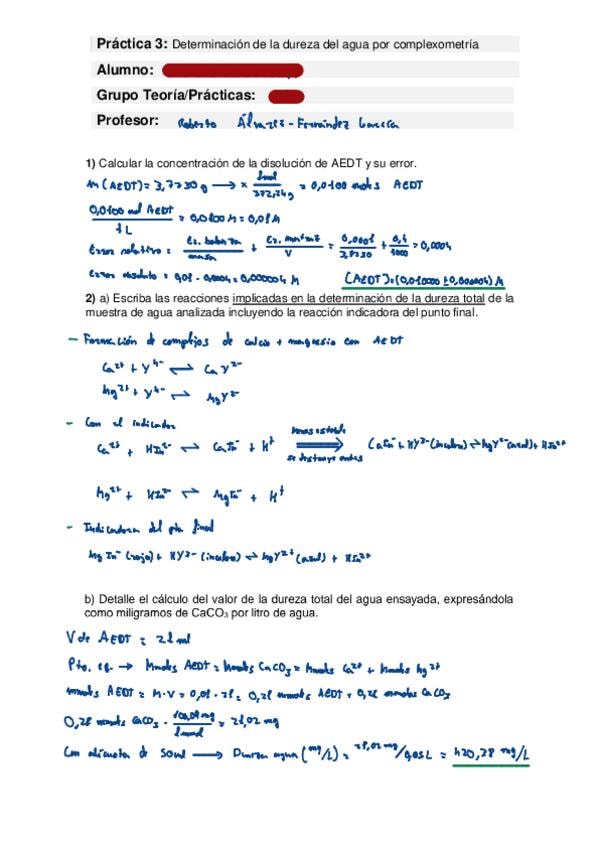 Práctica 3: Determinación de la dureza del agua por complexometría
Alumno:
Grupo Teoría/Prácticas:
Profesor: Roberto Álvarez-Fernández García
1) Calcular la concentración de la disolución de AEDT y su error.
m(AEDT)= 3,7230 g → x 1mol/372,24g = 0,0100 mols AEDT
0,0100 mol AEDT / 1 L = 0,0100 M = 0,01 M
Error relativo = Er. balanza/masa + Er. matraz/V = 0,0001/3,7230 + 0,4/1000 = 0,0004
Error absoluto = 0,01 · 0,0004 = 0,000004 M [AEDT]=(0,010000 ± 0,000004) M
2) a) Escriba las reacciones implicadas en la determinación de la dureza total de la
muestra de agua analizada incluyendo la reacción indicadora del punto final.
- Formación de complejos de calcio + magnesio con AEDT
Ca²⁺ + Y⁴⁻ ⇌ CaY²⁻
Mg²⁺ + Y⁴⁻ ⇌ MgY²⁻
- Con el indicador
Ca²⁺ + HIn²⁻ ⇌ CaIn⁻ + H⁺ menos estable se destruye antes CaIn⁻ + HY³⁻ (incoloro) ⇌ MgY²⁻ (azul) + HIn²⁻
Mg²⁺ + HIn²⁻ ⇌ MgIn⁻ + H⁺
- Indicadora del pto final
MgIn⁻ (rojo) + HY³⁻ (incoloro) ⇌ MgY²⁺ (azul) + HIn²⁻
b) Detalle el cálculo del valor de la dureza total del agua ensayada, expresándola
como miligramos de CaCO₃ por litro de agua.
V de AEDT = 21 ml
Pto. eq. → mmols AEDT = mmols CaCO₃ = mmols Ca²⁺ + mmols Mg²⁺
mmols AEDT = M·V = 0,01 · 21 = 0,21 mmols AEDT = 0,21 mmols CaCO₃
0,21 mmols CaCO₃ · 100,09 mg/1mmol = 21,02 mg
Con alícuota de 50ml → Dureza agua (mg/L) = 21,02 mg/0,05 L = 420,28 mg/L